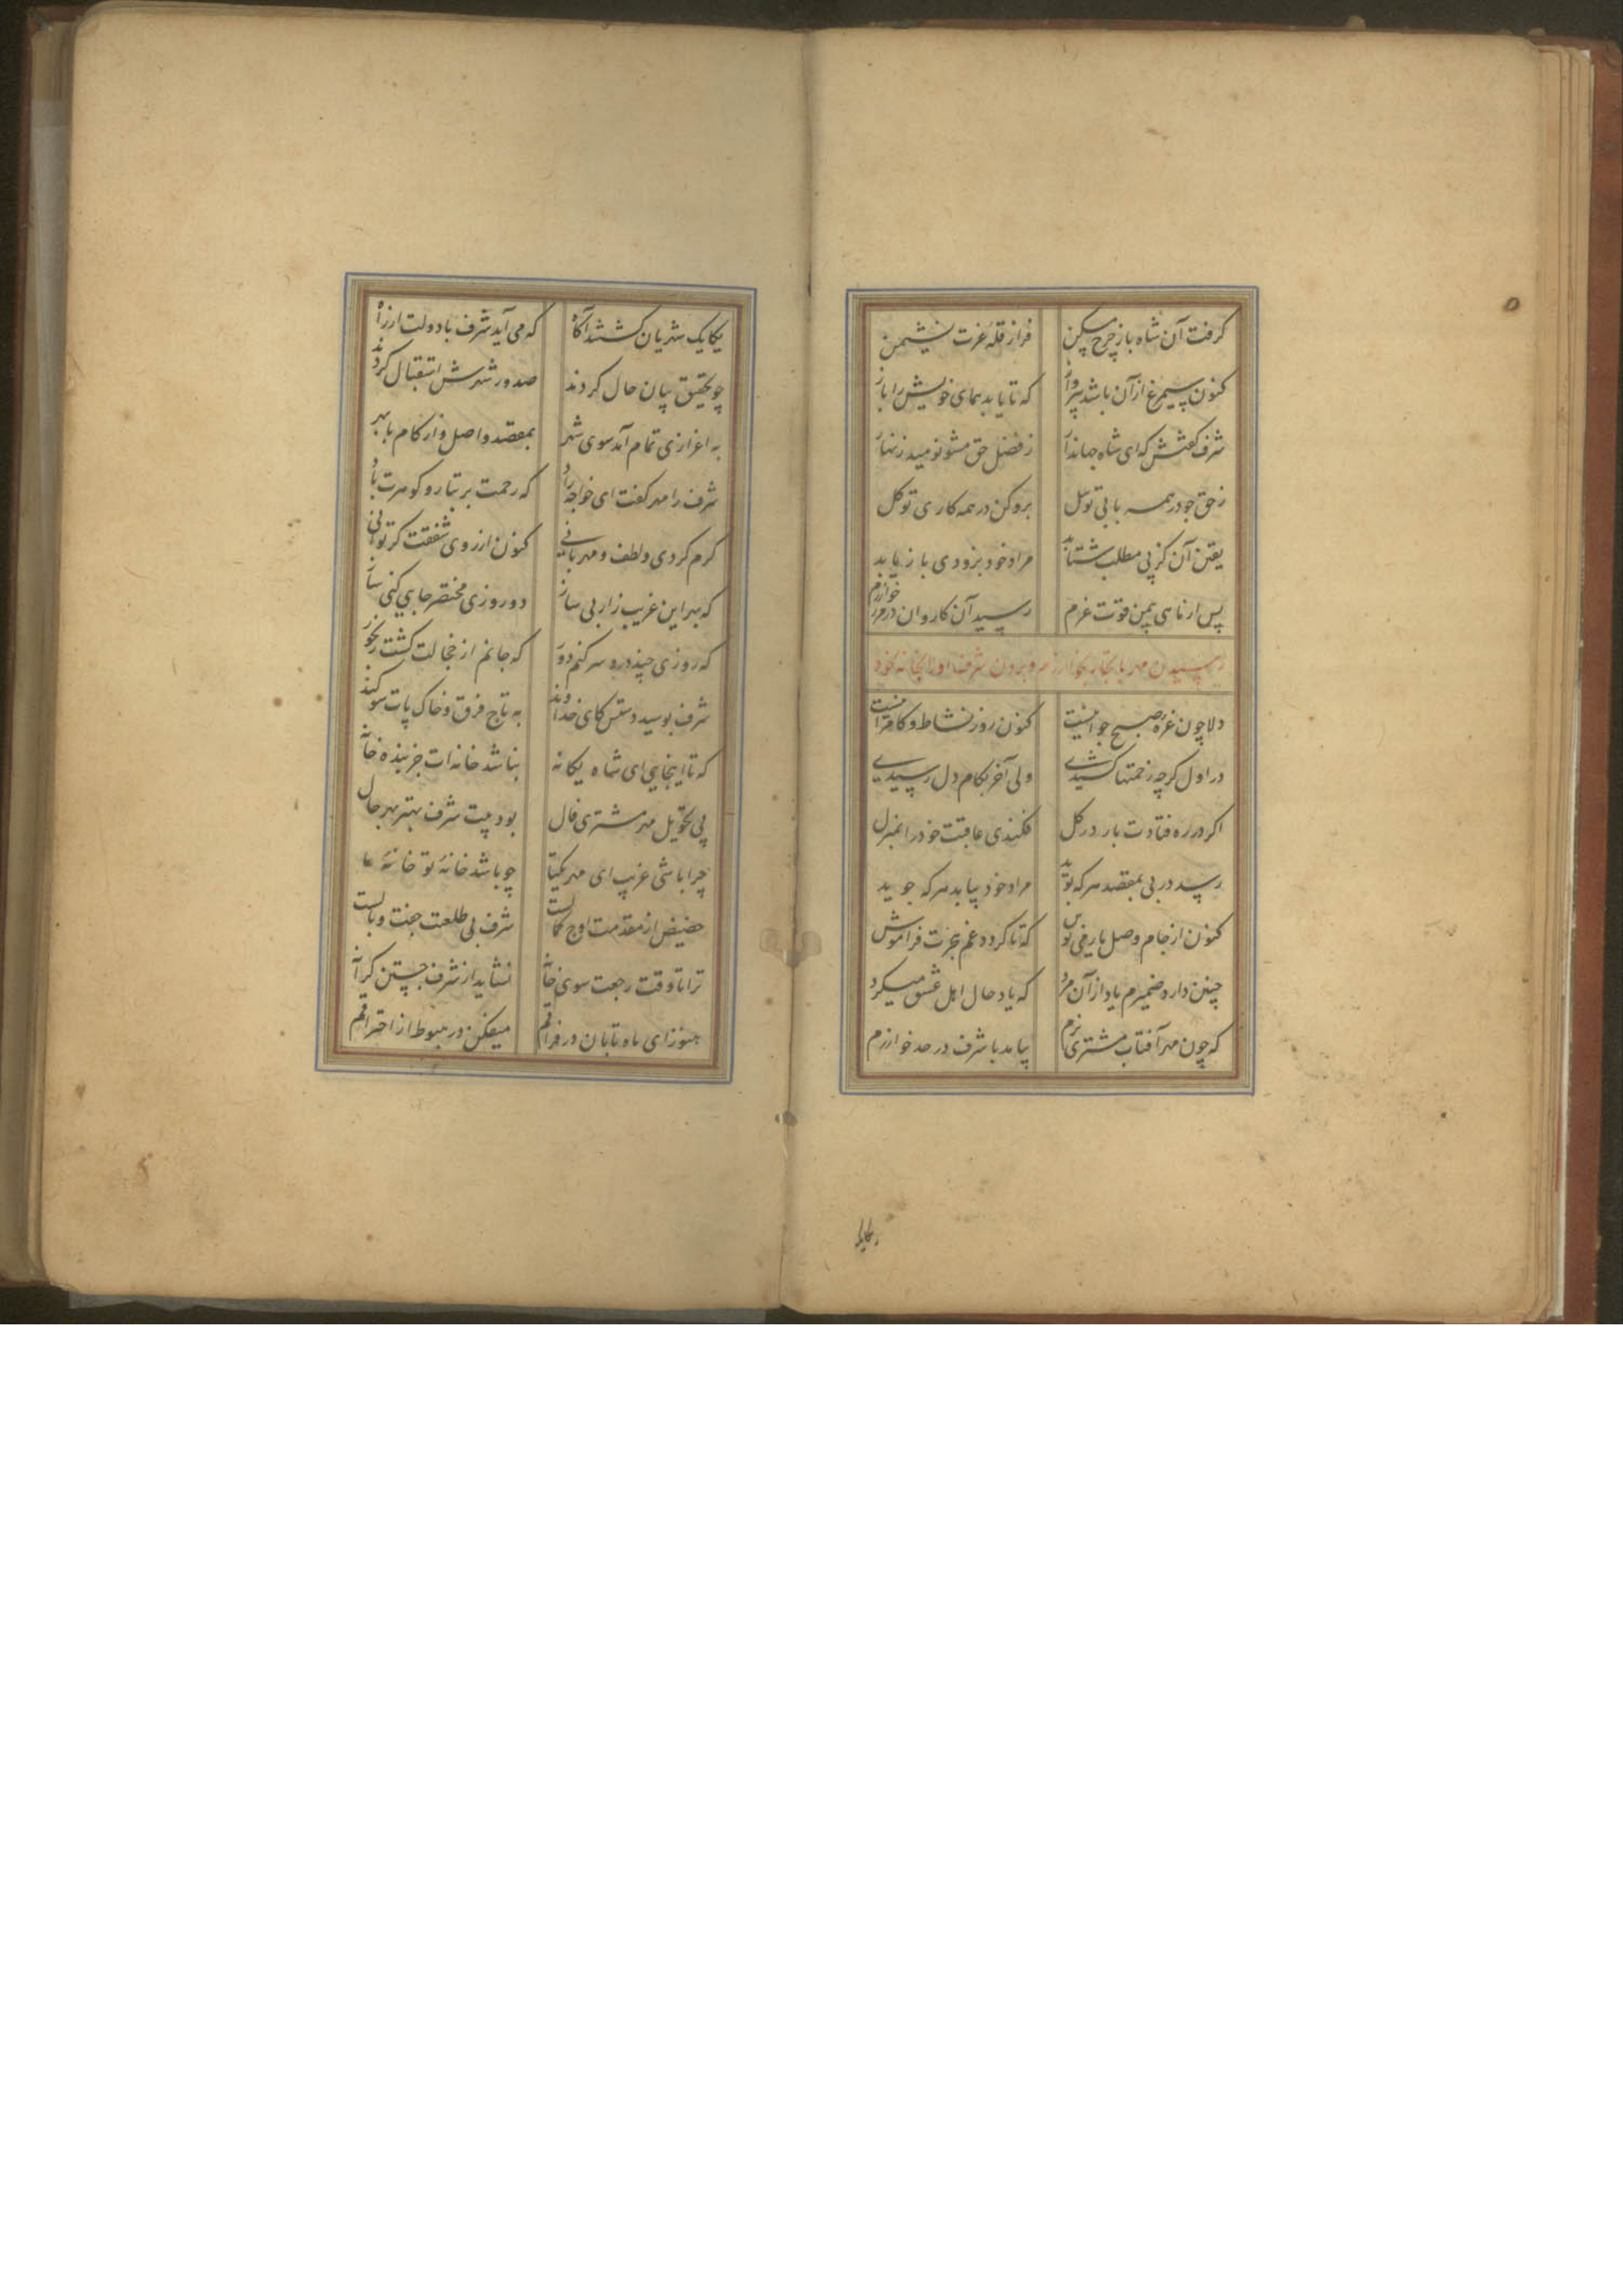 کرفت آن شاه باز چرخ مسکن فراز قله عزت نشیمن
کنون سیمرغ از آن باشد بپرواز که تا یابد همای خویش را باز
شرف کفتش که ای شاه جهاندار ز فضل حق مشو نومید زنهار
ز حق جو در همه بابی توسل برو کن در همه کاری توکل
یقین آن کز پی مطلب شتابد مراد خود بزودی باز یابد
پس از ماهی بیمن قوت عزم رسید آن کاروان در مرز خوارزم
رسیدن مهر با تجار بخوارزم و بردن شرف او را بخانه خود
دلا چون غره صبح جوانیست کنون روز نشاط و کامرانیست
در اول کرچه زحمتها کشیدی ولی آخر بکام دل رسیدی
اکر در ره فتادت بار در کل فکندی عاقبت خود را بمنزل
رسد در پی بمقصد هر که پوید مراد خود بیابد هر که جوید
کنون از جام وصل یار می نوش که تا کردد غم هجرت فراموش
چنین دارد ضمیرم یاد از آن مرد که یاد حال اهل عشق میکرد
که چون مهر آفتاب مشتری بزم بیامد با شرف در حد خوارزم
یکایک
یکایک شهریان کشتند آکاه که می آید شرف با دولت از راه
چو تحقیق بیان حال کردند صدور شهرش استقبال کردند
به اعزازی تمام آمد سوی شهر بمقصد واصل و از کام با بهر
شرف را مهر کفت ای خواجه راد که رحمت بر تبار و کوهرت باد
کرم کردی و لطف و مهربانی کنون از روی شفقت کر توانی
که بهر این غریب زار بی ساز دو روزی مختصر جایی کنی ساز
که روزی چند درد سر کنم دور که جانم از خجالت کشت رنجور
شرف بوسید دستش کای خداوند به تاج فرق و خاک پات سوکند
که تا اینجایی ای شاه یکانه نباشد خانه ات جز بنده خانه
پی تحویل مهر مشتری فال بود بیت شرف بهتر بهر حال
چرا باشی غریب ای مهر یکتا چو باشد خانه تو خانه ما
حضیض از مقدمت اوج کمالست شرف بی طلعت جفت وبالست
ترا تا وقت رجعت سوی خانه نشاید از شرف جستن کرانه
هنوز ای ماه تابان در فراقم میفکن در هبوط از احتراقم